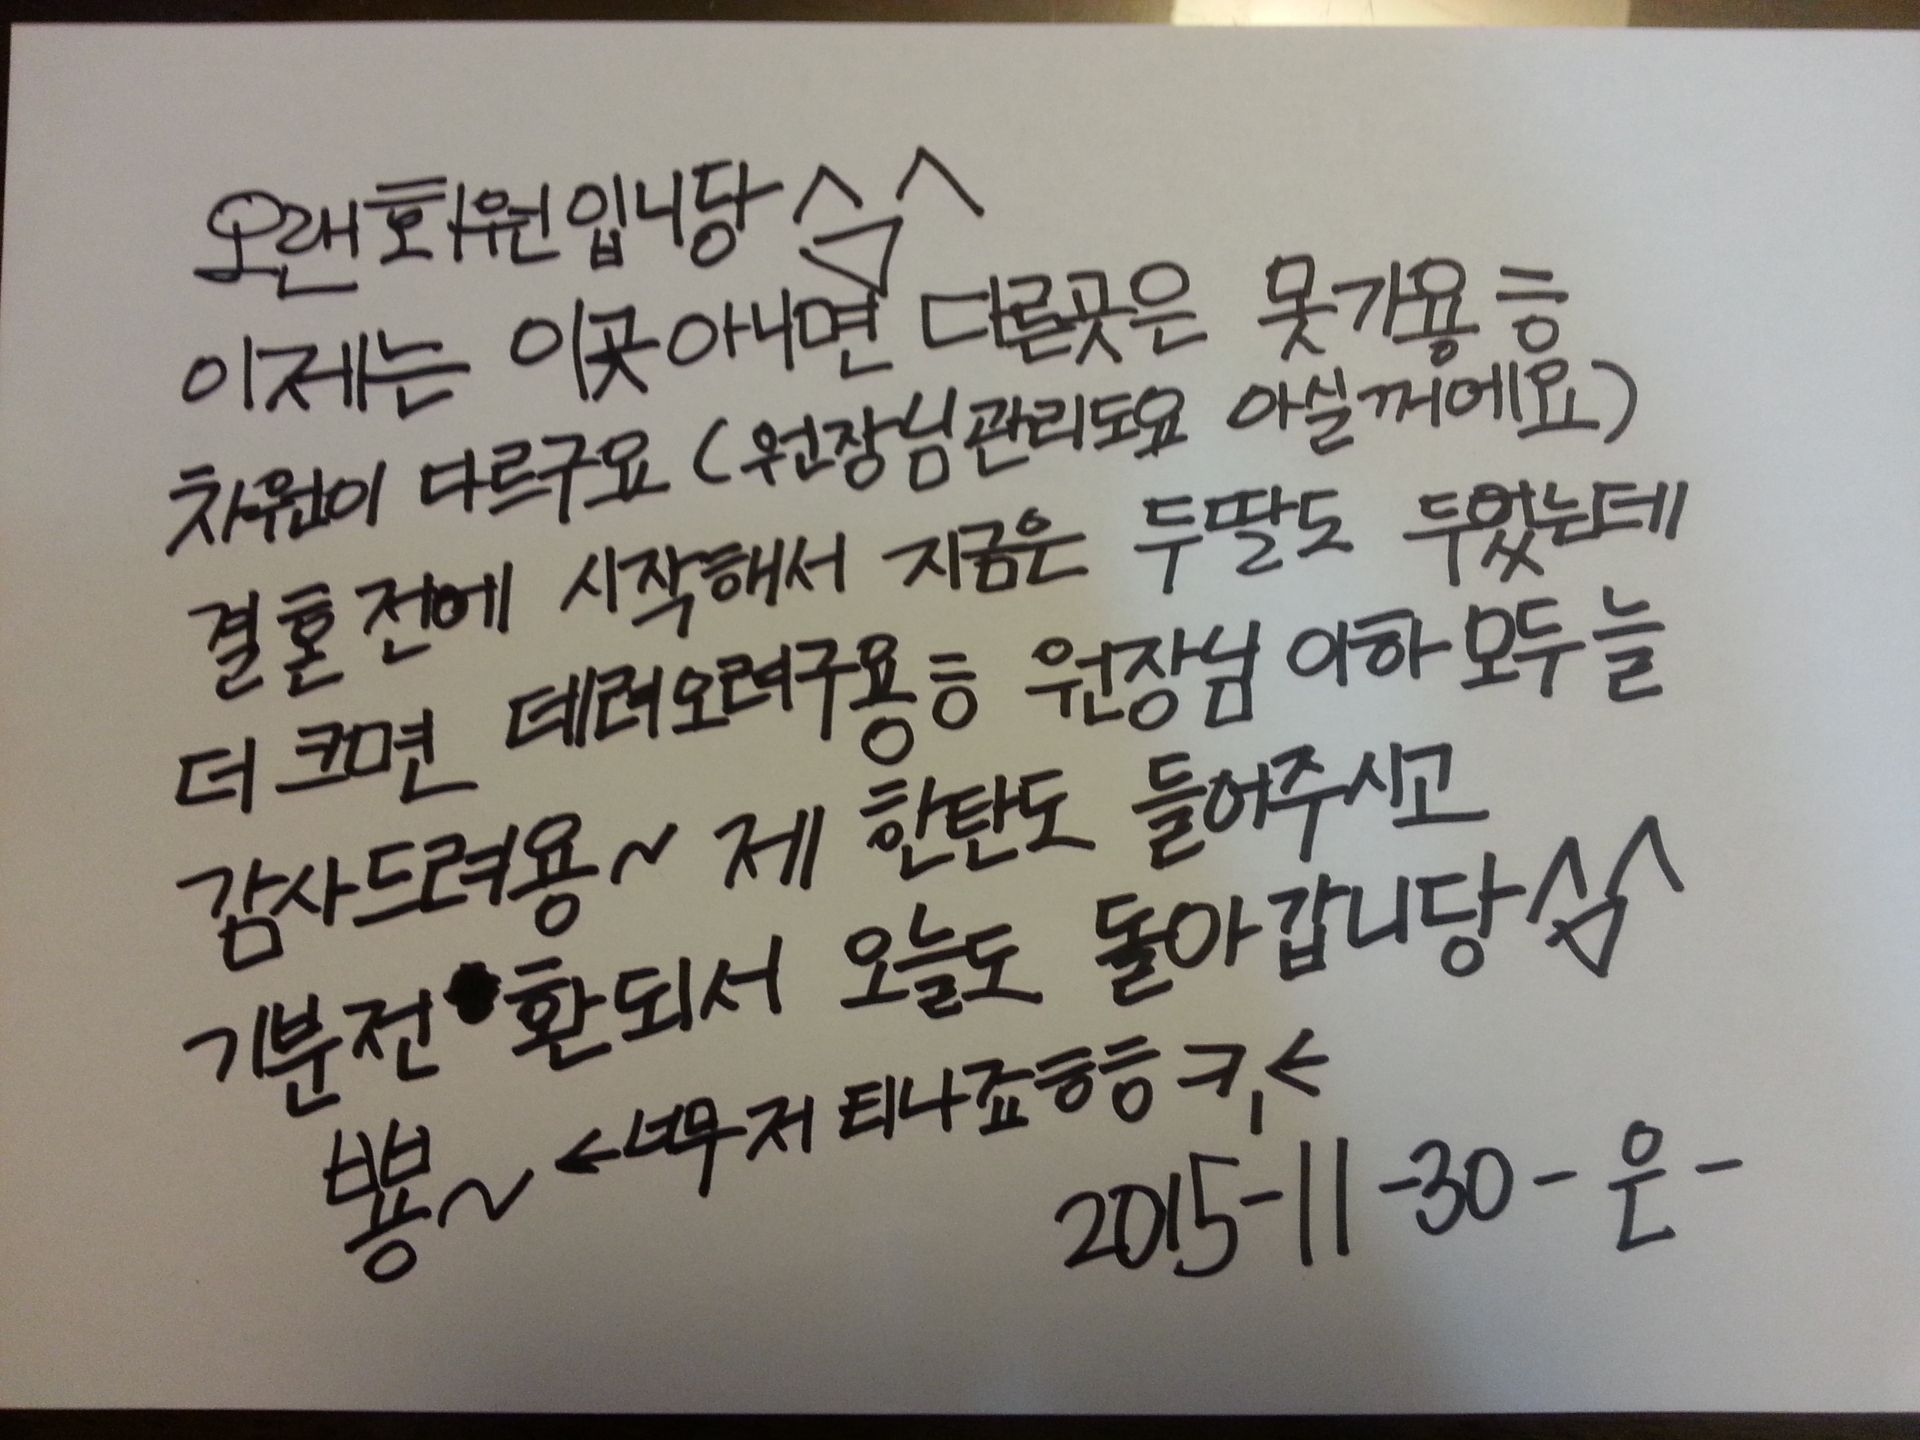 오랜회원입니당 ^^
이제는 이곳아니면 다른곳은 못가용 ㅎ
차원이 다르구요 (원장님관리도요 아실꺼에요)
결혼전에 시작해서 지금은 두딸도 두었는데
더 크면 데려오려구용ㅎ 원장님 이하 모두 늘
감사드려용~ 제 한탄도 들어주시고
기분전환되서 오늘도 돌아갑니당 ^^
뿅~ ←너무 저 티나죠ㅎㅎ ㅋ,←
2015-11-30-은-